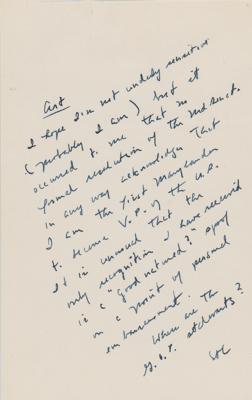 Art
I hope I'm not unduly sensitive
(probably I am) but it
occurred to me that no
formal resolution of the Md. Senate
in any way acknowledges that
I am the first Marylander
to become V.P. of the U.S.
It is unusual that the
only recognition I have received
is a "good natured" spoof
on a point of personal
embarrassment.
Where are the
G.O.P. stalwarts?